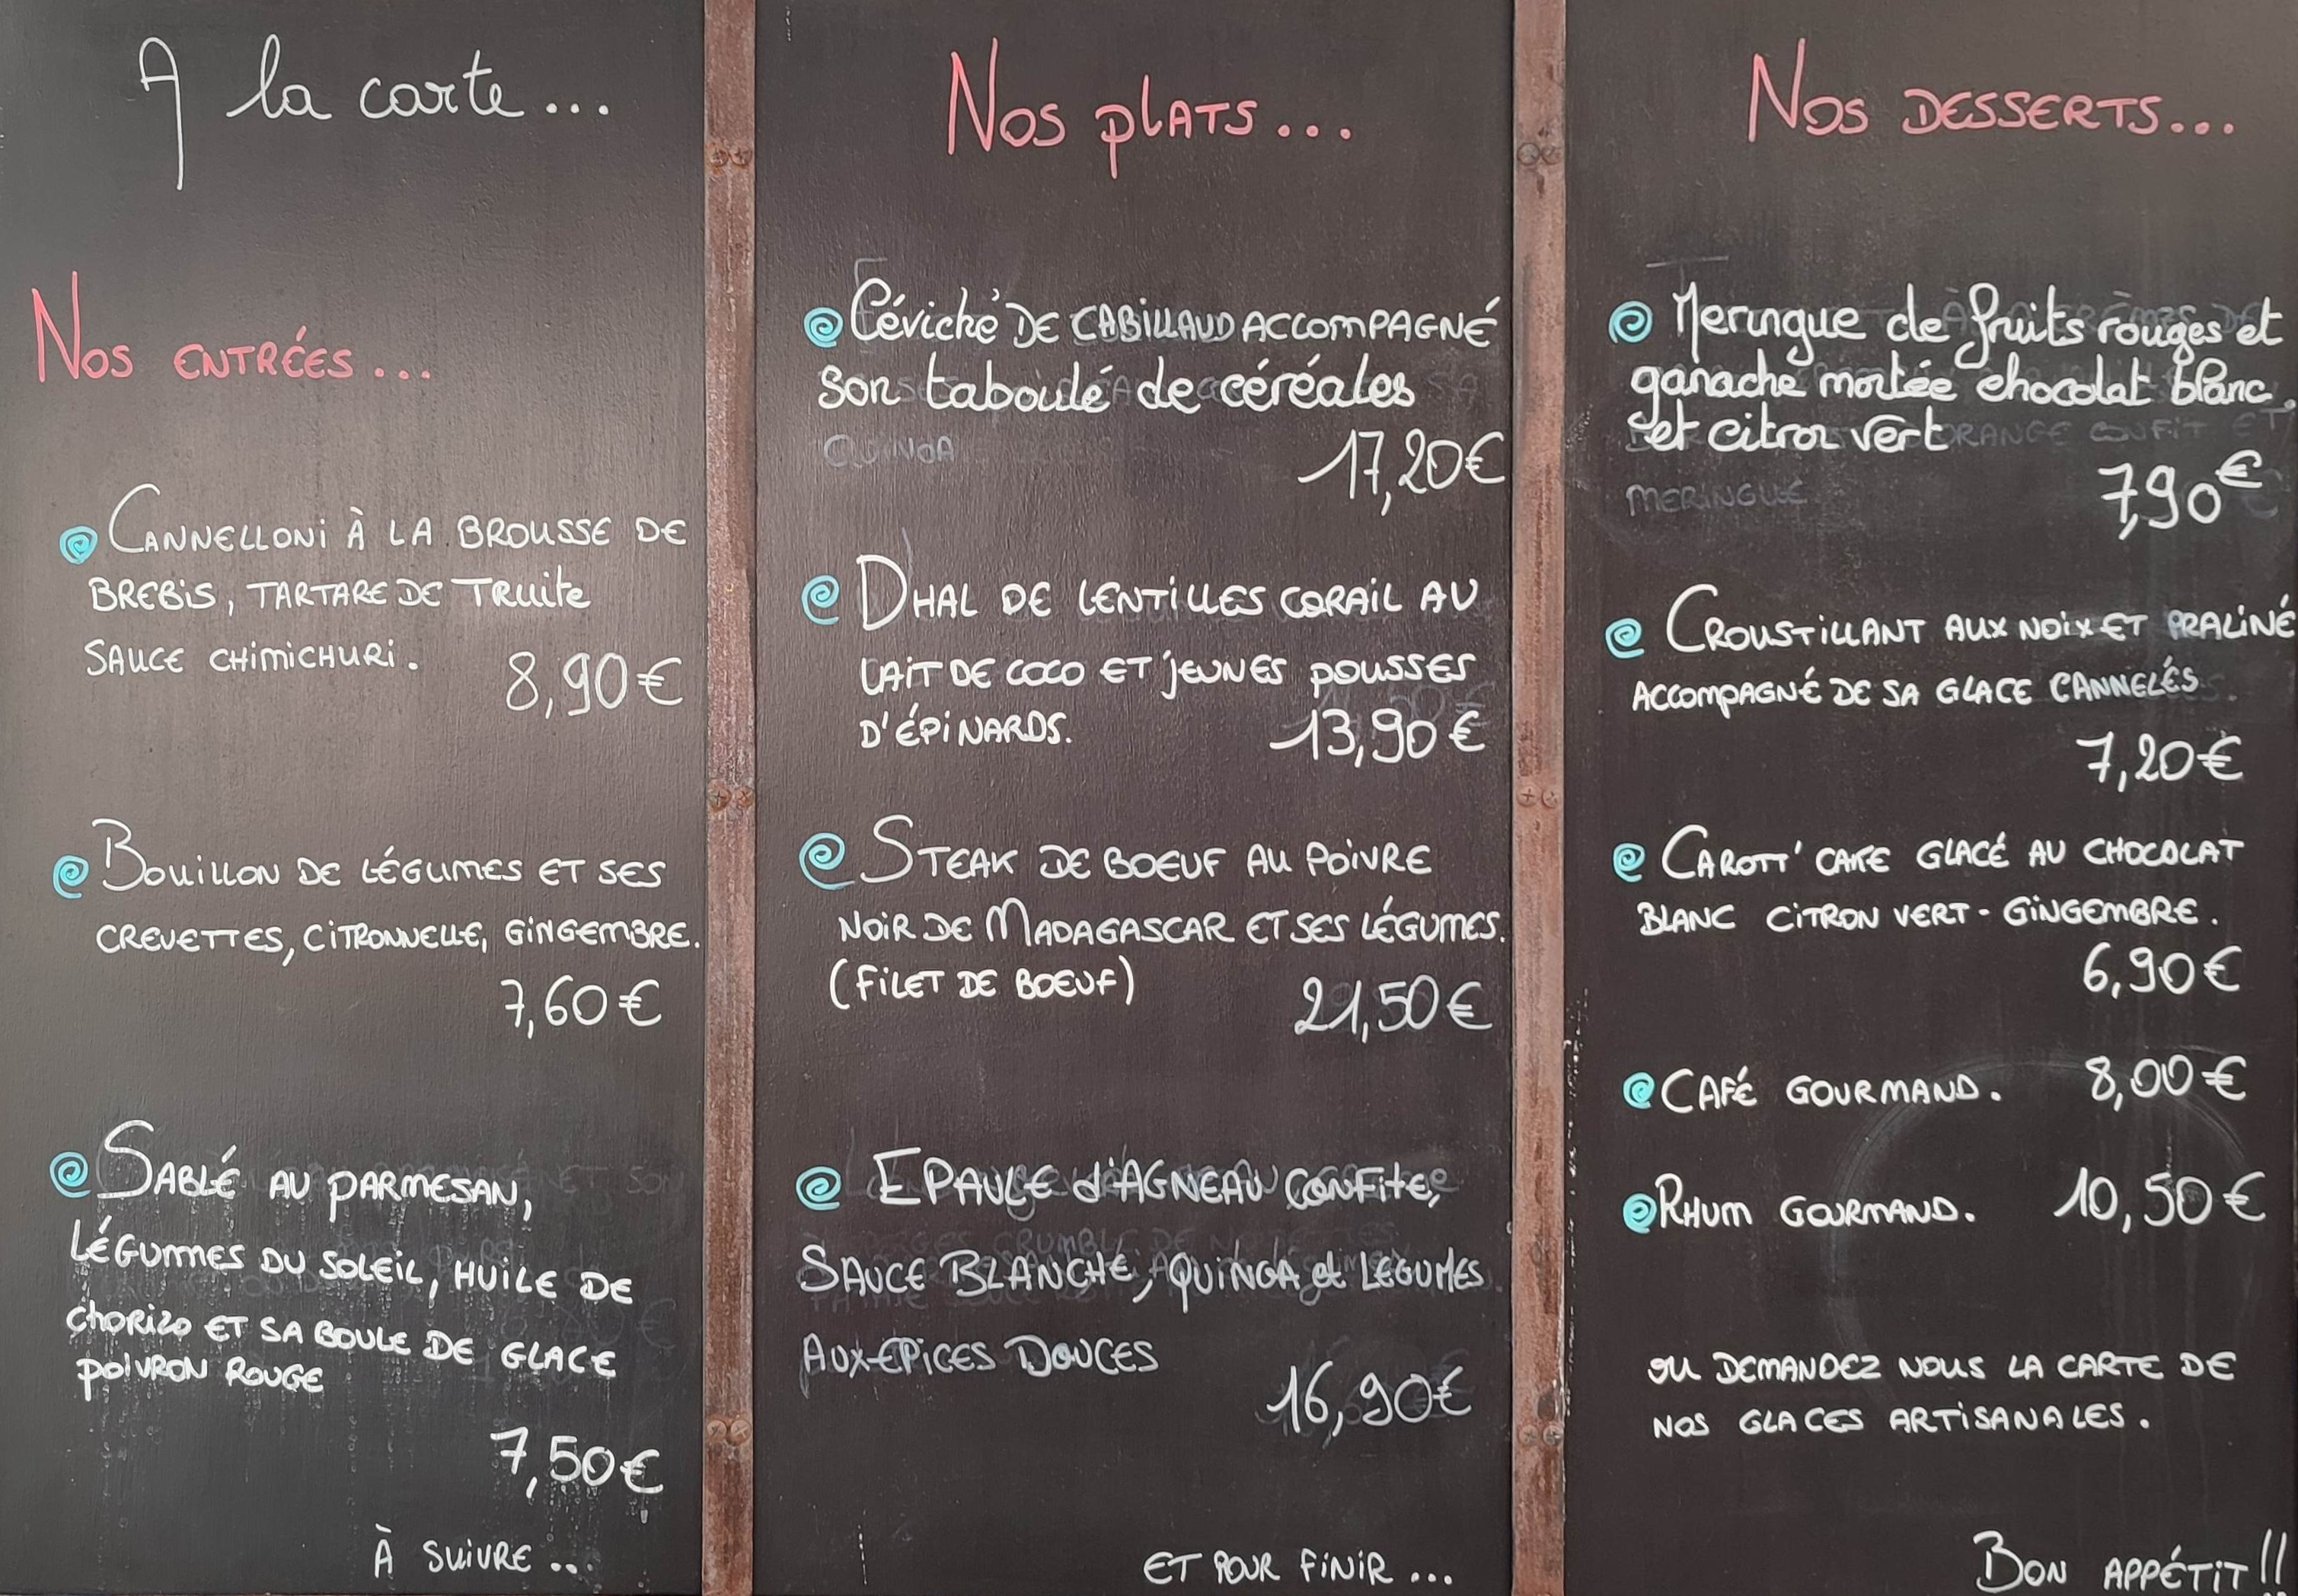 A la carte...
Nos ENTRÉES...
CANNELLONI À LA BROUSSE DE
BREBIS, TARTARE DE TRUITE
SAUCE CHIMICHURI.
8,90€
BOUILLON DE LÉGUMES ET SES
CREVETTES, CITRONNELLE, GINGEMBRE.
7,60€
SABLÉ AU PARMESAN,
LÉGUMES DU SOLEIL, HUILE DE
CHORIZO ET SA BOULE DE GLACE
POIVRON ROUGE
7,50€
À SUIVRE...
Nos plATS...
Céviché DE CABILLAUD ACCOMPAGNÉ
son taboulé de céréales
QUINOA
17,20€
DHAL DE LENTILLES CORAIL AU
LAIT DE COCO ET JEUNES POUSSES
D'ÉPINARDS.
13,90€
STEAK DE BOEUF AU POIVRE
NOIR DE MADAGASCAR ET SES LÉGUMES.
(FILET DE BOEUF)
21,50€
EPAULE d'AGNEAU CONFITE,
SAUCE BLANCHE, QUINOA et LEGUMES
AUX EPICES DOUCES
16,90€
ET POUR FINIR...
Nos DESSERTS...
Meringue de fruits rouges et
ganache montée chocolat blanc
et citron vert ORANGE CONFIT ET
MERINGUÉ
7,90€
CROUSTILLANT AUX NOIX ET PRALINÉ
ACCOMPAGNÉ DE SA GLACE CANNELÉS
7,20€
CAROTT' CAKE GLACÉ AU CHOCOLAT
BLANC CITRON VERT - GINGEMBRE.
6,90€
CAFÉ GOURMAND. 8,00€
RHUM GOURMAND. 10,50€
OU DEMANDEZ NOUS LA CARTE DE
NOS GLACES ARTISANALES.
BON APPÉTIT!!